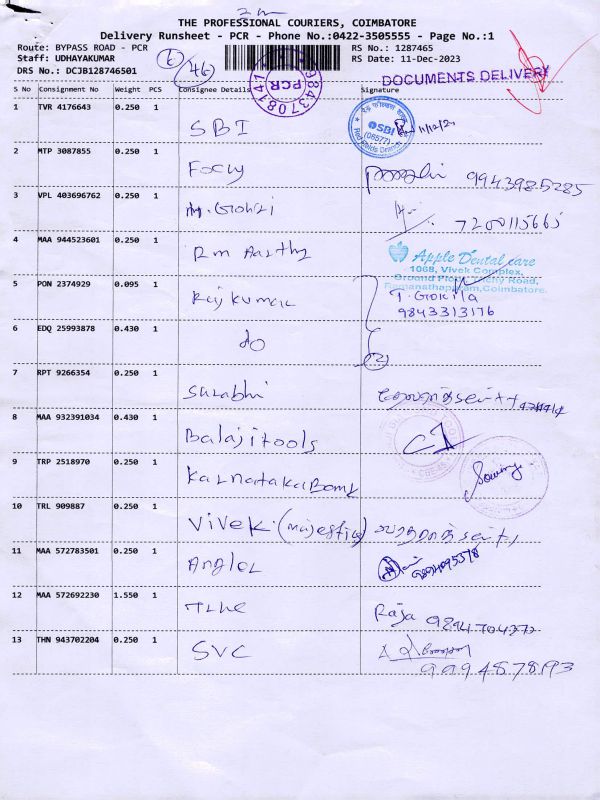 THE PROFESSIONAL COURIERS, COIMBATORE
Delivery Runsheet - PCR - Phone No.:0422-3505555 - Page No.:1
Route: BYPASS ROAD - PCR RS No.: 1287465
Staff: UDHAYAKUMAR RS Date: 11-Dec-2023
DRS No.: DCJB128746501
6/46
9843708141 PCR
DOCUMENTS DELIVERY
S No Consignment No Weight PCS Consignee Details Signature
1 TVR 4176643 0.250 1 SBI
SBI (08577)
2 MTP 3087855 0.250 1 9943985285
3 VPL 403696762 0.250 1 7200115665
4 MAA 944523601 0.250 1 Rm Aarthy
Apple Dental care
1068, Vivek Complex,
Ground Floor, Trichy Road,
Ramanathapuram, Coimbatore.
5 PON 2374929 0.095 1 Rajkumar T. Gokila
9843313176
6 EDQ 25993878 0.430 1 do
7 RPT 9266354 0.250 1 Surabhi
8 MAA 932391034 0.430 1 Balaji tools
9 TRP 2518970 0.250 1 Karnataka Bank
10 TRL 909887 0.250 1 Vivek (Majestic)
11 MAA 572783501 0.250 1 Angler
12 MAA 572692230 1.550 1 Raja 9894704372
13 THN 943702204 0.250 1 SVC
9994878193